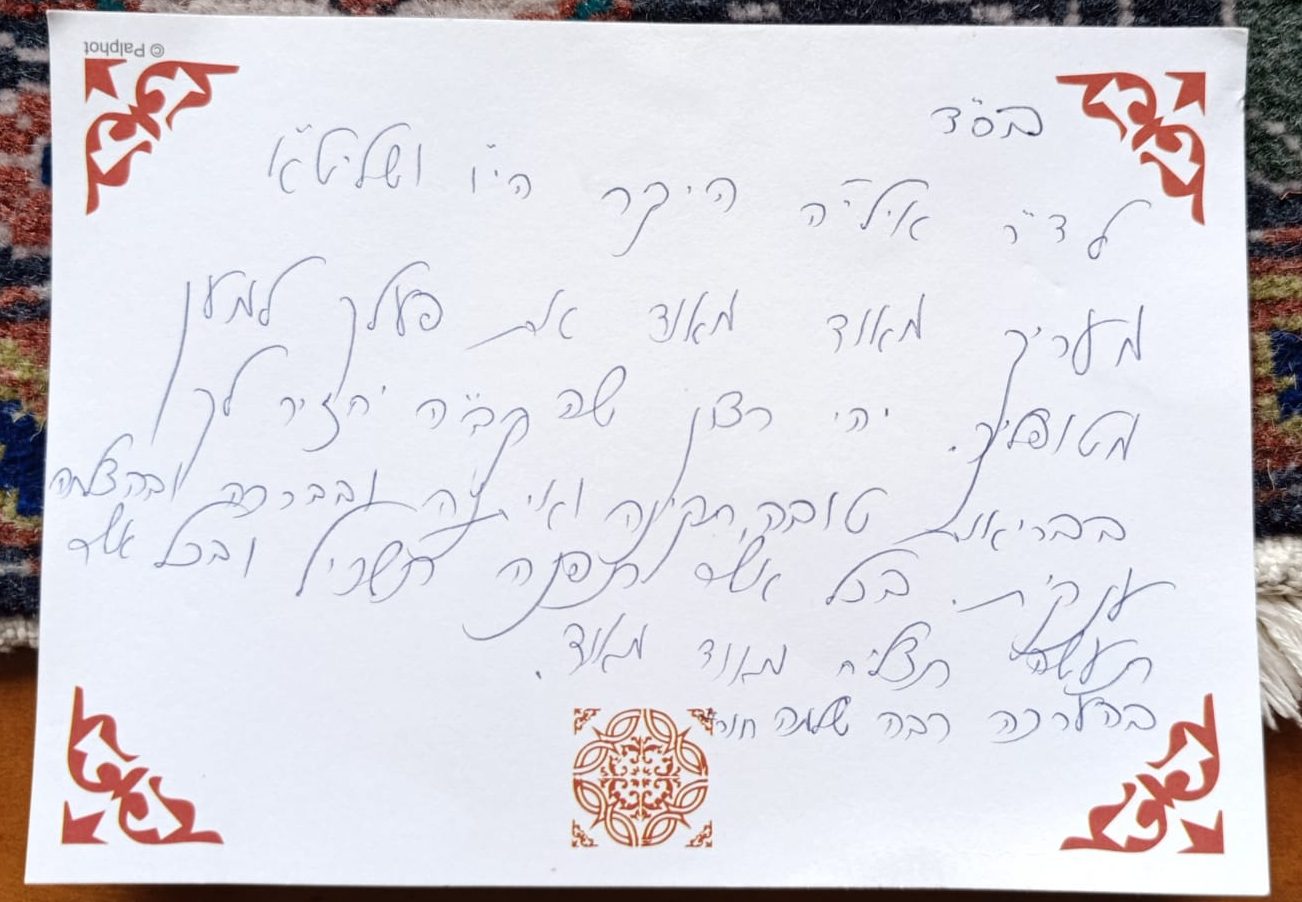 © Palphot
בס"ד
לד"ר אילי"ה היקר הי"ו ושליט"א
מעריך מאוד מאוד את פעלך למען
מטופליך. יהי רצון שהקב"ה יחזיר לך
בבריאות טובה, תקינה ובברכה ובהצלחה
ענקית. בכל אשר תפנה תשכיל ובכל אשר
תעשה תצליח מאוד מאוד.
בהערכה רבה שלמה